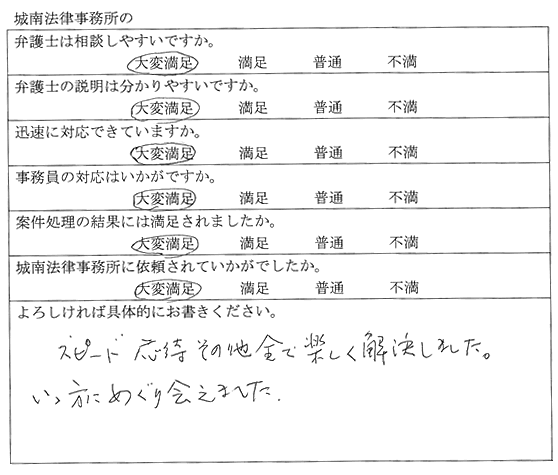 城南法律事務所の
弁護士は相談しやすいですか。
大変満足 満足 普通 不満
弁護士の説明は分かりやすいですか。
大変満足 満足 普通 不満
迅速に対応できていますか。
大変満足 満足 普通 不満
事務員の対応はいかがですか。
大変満足 満足 普通 不満
案件処理の結果には満足されましたか。
大変満足 満足 普通 不満
城南法律事務所に依頼されていかがでしたか。
大変満足 満足 普通 不満
よろしければ具体的にお書きください。
スピード 応待 その他 全て楽しく解決しました。
いい方にめぐり会えました.